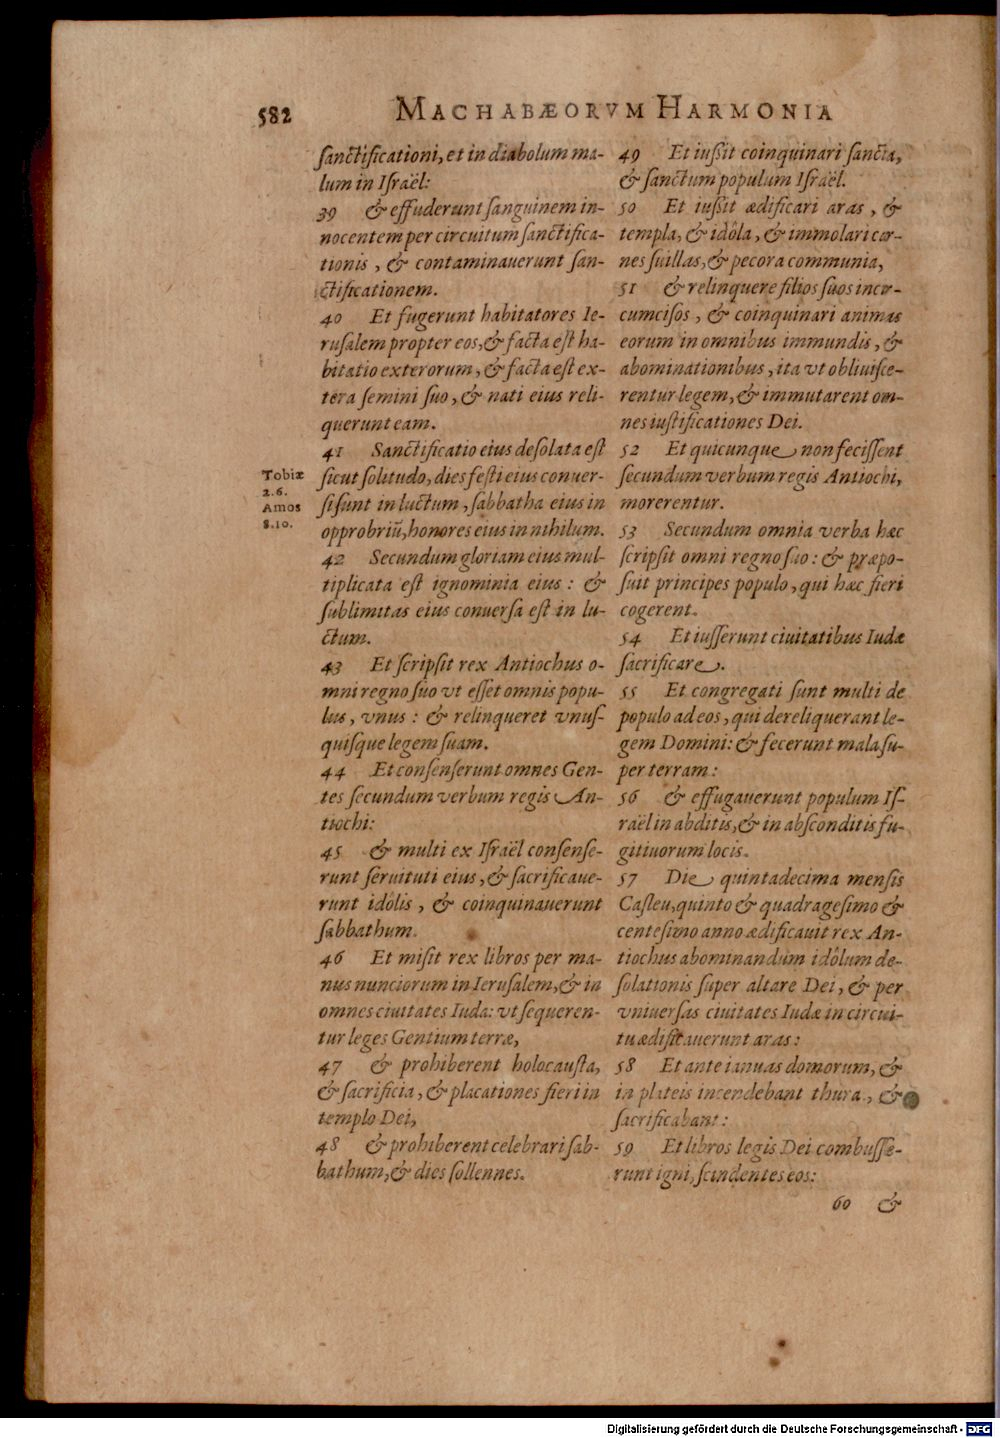 582 MACHABÆORVM HARMONIA
sanctificationi, et in diabolum ma-
lum in Israël:
39 & effuderunt sanguinem in-
nocentem per circuitum sanctifica-
tionis, & contaminauerunt san-
ctificationem.
40 Et fugerunt habitatores Ie-
rusalem propter eos, & facta est ha-
bitatio exterorum, & facta est ex-
tera semini suo, & nati eius reli-
querunt eam.
41 Sanctificatio eius desolata est
sicut solitudo, dies festi eius conuer-
si sunt in luctum, sabbatha eius in
opprobriũ, honores eius in nihilum.
42 Secundum gloriam eius mul-
tiplicata est ignominia eius: &
sublimitas eius conuersa est in lu-
ctum.
43 Et scripsit rex Antiochus o-
mni regno suo vt esset omnis popu-
lus, vnus: & relinqueret vnus-
quisque legem suam.
44 Et consenserunt omnes Gen-
tes secundum verbum regis An-
tiochi:
45 & multi ex Israël consense-
runt seruituti eius, & sacrificaue-
runt idôlis, & coinquinauerunt
sabbathum.
46 Et misit rex libros per ma-
nus nunciorum in Ierusalem, & in
omnes ciuitates Iuda: vt sequeren-
tur leges Gentium terræ,
47 & prohiberent holocausta,
& sacrificia, & placationes fieri in
templo Dei,
48 & prohiberent celebrari sab-
bathum, & dies sollennes.
Tobiæ
2.6.
Amos
8.10.
49 Et iussit coinquinari sancta,
& sanctum populum Israël.
50 Et iussit ædificari aras, &
templa, & idôla, & immolari car-
nes suillas, & pecora communia,
51 & relinquere filios suos incir-
cumcisos, & coinquinari animas
eorum in omnibus immundis, &
abominationibus, ita vt obliuisce-
rentur legem, & immutarent om-
nes iustificationes Dei.
52 Et quicunque non fecissent
secundum verbum regis Antiochi,
morerentur.
53 Secundum omnia verba hæc
scripsit omni regno suo: & præpo-
suit principes populo, qui hæc fieri
cogerent.
54 Et iusserunt ciuitatibus Iudæ
sacrificare.
55 Et congregati sunt multi de
populo ad eos, qui dereliquerant le-
gem Domini: & fecerunt mala su-
per terram:
56 & effugauerunt populum Is-
raël in abditis, & in absconditis fu-
gitiuorum locis.
57 Die quintadecima mensis
Casleu, quinto & quadragesimo &
centesimo anno ædificauit rex An-
tiochus abominandum idôlum de-
solationis super altare Dei, & per
vniuersas ciuitates Iudæ in circui-
tu ædificauerunt aras:
58 Et ante ianuas domorum, &
in plateis incendebant thura, &
sacrificabant:
59 Et libros legis Dei combusse-
runt igni, scindentes eos:
60 &
Digitalisierung gefördert durch die Deutsche Forschungsgemeinschaft - DFG